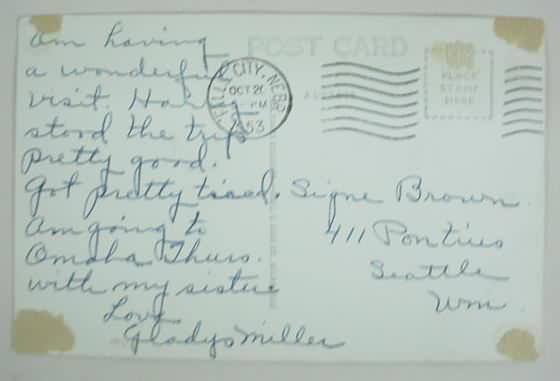 Am having
a wonderful
visit. Harry
stood the trip
pretty good.
Got pretty tired.
Am going to
Omaha Thurs.
with my sister
Love
Gladys Miller
POST CARD
FALLS CITY, NEBR.
OCT 20
PM
1953
PLACE
STAMP
HERE
Signe Brown
411 Pontius
Seattle
Wn